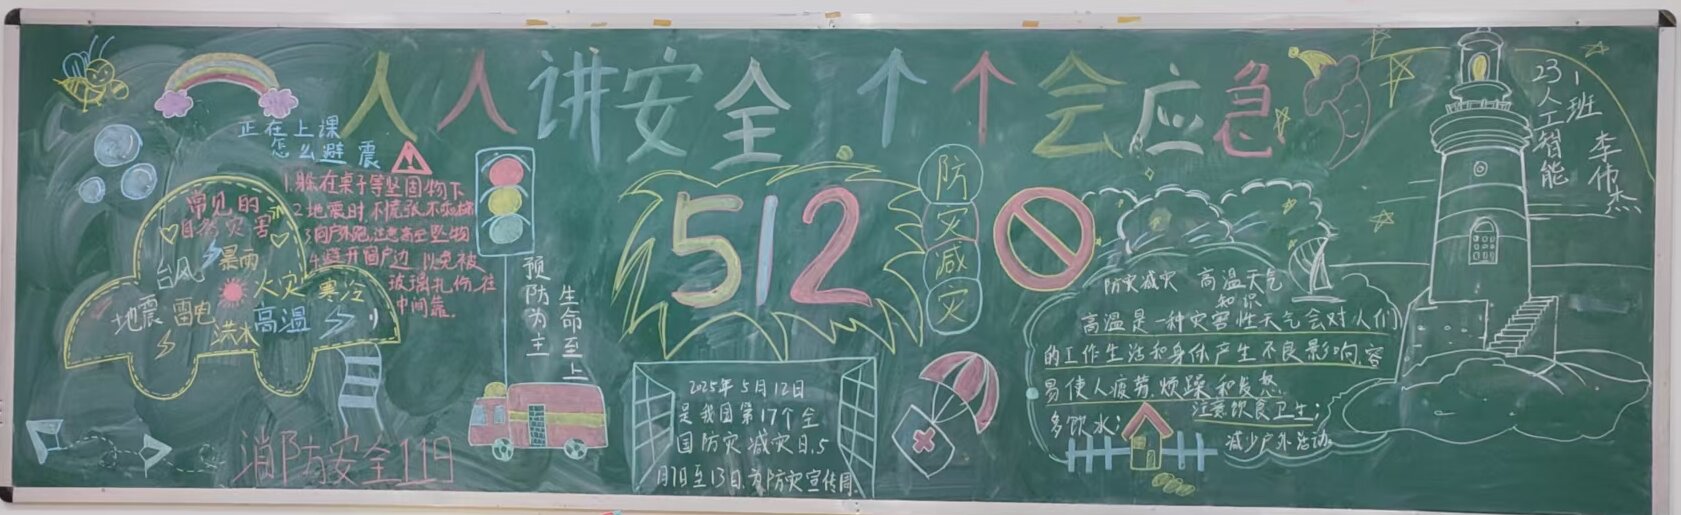 人人讲安全 个个会应急
正在上课
怎么避震
1.躲在桌子等坚固物下
2.地震时不慌张不乱
3.向户外跑,注意高空坠物
4.避开窗户边 以免被
玻璃扎伤,往
中间靠.
常见的
自然灾害
台风
暴雨
火灾
寒冷
地震
雷电
洪水
高温
消防安全119
预防为主
生命至上
512
防
灾
减
灾
2025年5月12日
是我国第17个全
国防灾减灾日,5
月 日至13日,为防灾宣传周.
防灾减灾 高温天气
知识
高温是一种灾害性天气会对人们
的工作生活和身体产生不良影响容
易使人疲劳,烦躁和发怒
多饮水;
注意饮食卫生;
减少户外活动.
23人工智能
1班
李伟杰